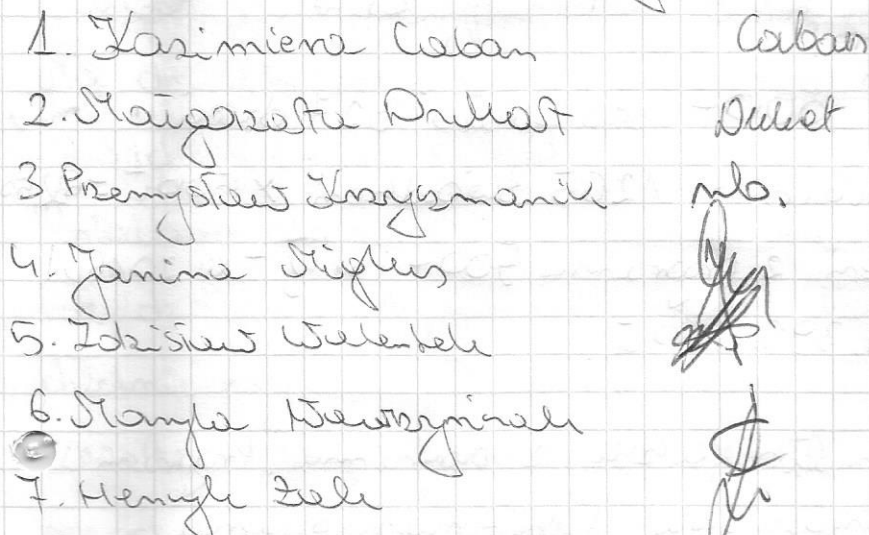 1. Kazimiera Caban Caban
2. Małgorzata Dukat Dukat
3 Przemysław Krzyszmanik nb.
4. Janina Miglus
5. Zdzisław Walentek
6. Maryla Wawrzyniak
7. Henryk Zięk